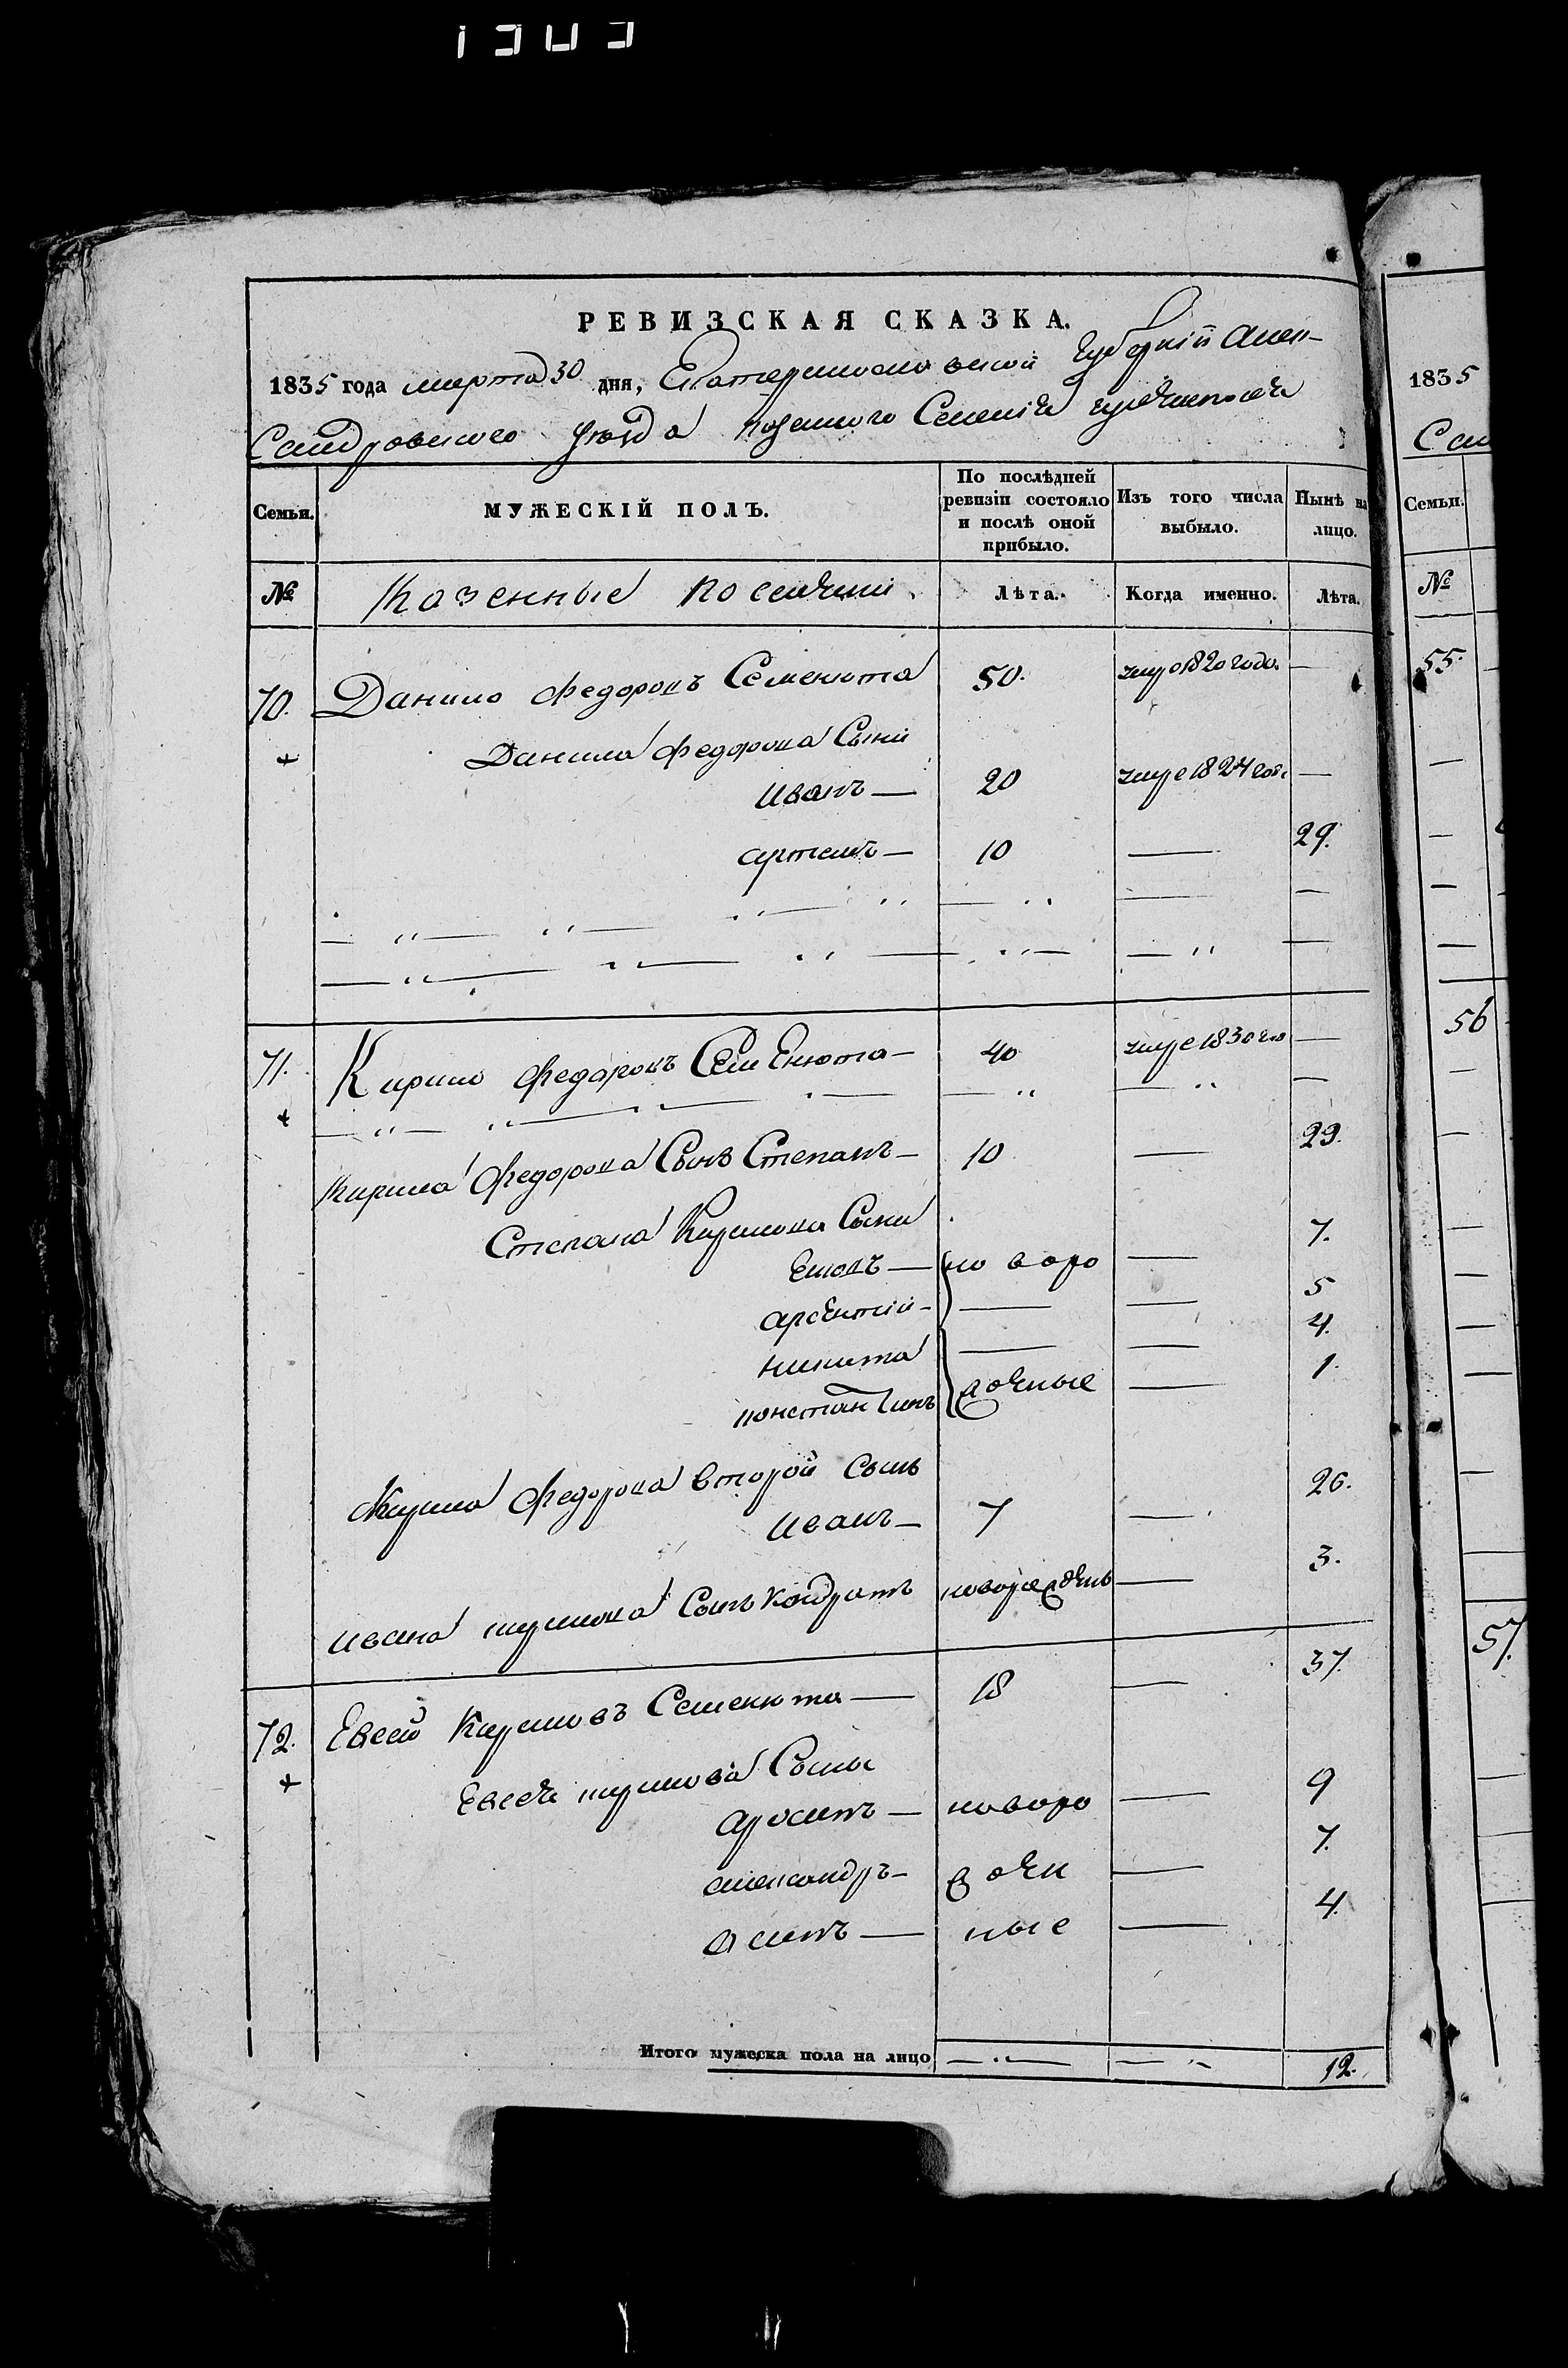 РЕВИЗСКАЯ СКАЗКА.
1835 года марта 30 дня, Екатеринославской Губернiи Алек-
сандровского уезда казенного Селенiя гуляйполя
Семьи. МУЖЕСКIЙ ПОЛЪ. По послѣдней ревизiи состояло и послѣ оной прибыло. Изъ того числа выбыло. Нынѣ на лицо.
№ Казенные поселяни. Лѣта. Когда именно. Лѣта.
70. Данило Федоровъ Семенюта 50. умр 1820 года —
Данила Федорова Сыни
Иванъ — 20 умре 1824 год. —
артемъ — 10 — 29.
71. Кирило Федоровъ Семенюта — 40 умре 1830 го —
Кирила Федорова Сынъ Степанъ — 10 — 29.
Степана Кирилова Сыни
новоро — 7.
арсентiй — — — 5
никита — — 4.
константинъ жденые — 1.
Кирила Федорова второй сынъ
иванъ — 7 — 26.
ивана кирилова Сынъ Кондратъ новорожденъ — 3.
72. Евсей Кириловъ Семенюта — 18 — 37.
Евсея кирилова Сыны
новоро — 9
александръ — жден — 7.
осипъ — ные — 4.
Итого мужеска пола на лицо — — 12.
1835
Сан
Семьи.
№
55.
56
57.